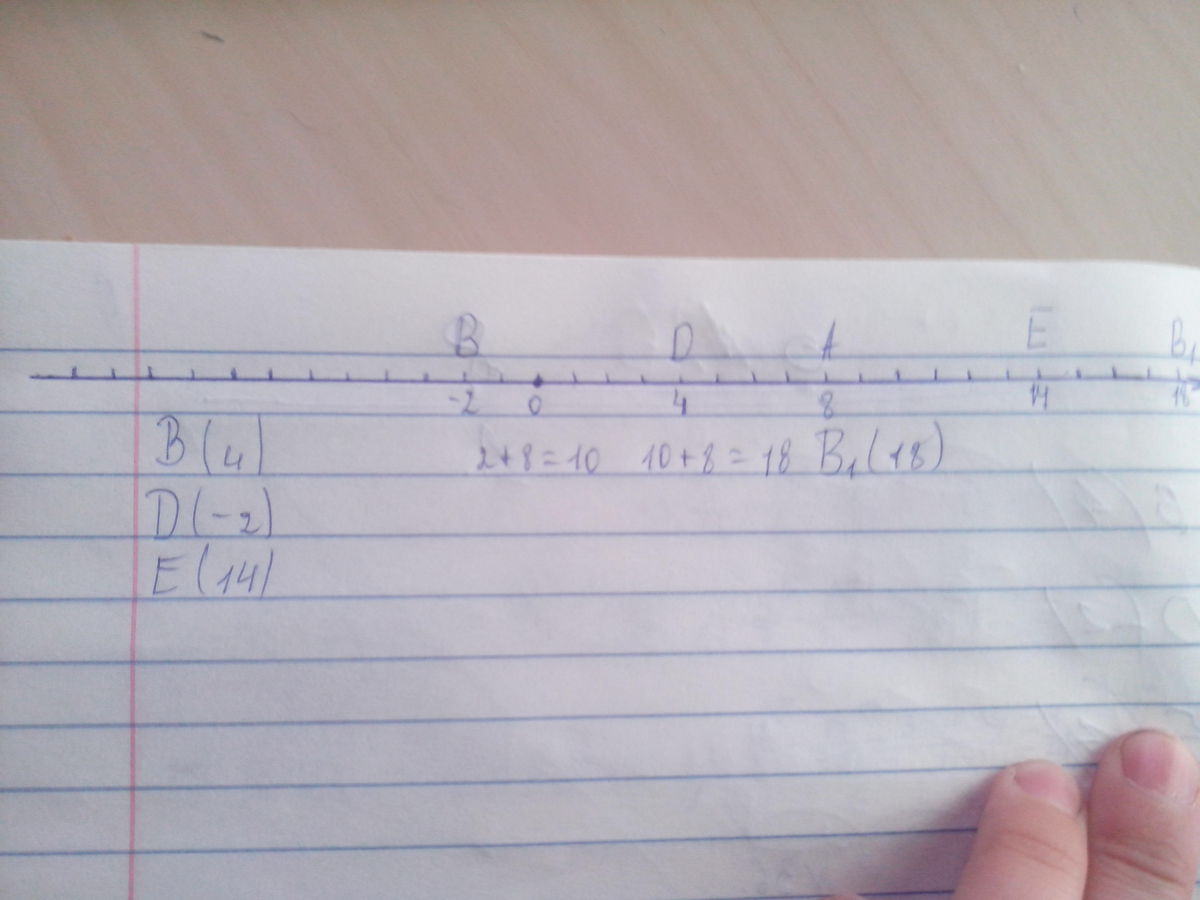 B D A E B₁
-2 0 4 8 14 18
B(4) 2+8=10 10+8=18 B₁(18)
D(-2)
E(14)